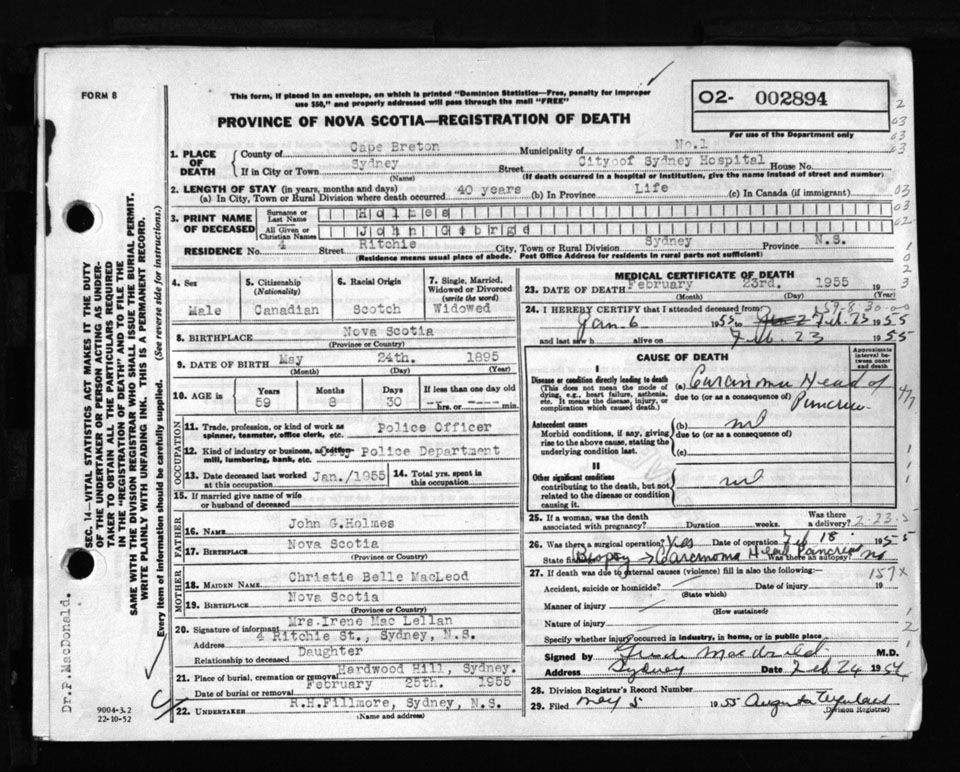 FORM 8
This form, if placed in an envelope, on which is printed "Dominion Statistics—Free, penalty for improper
use $50," and properly addressed will pass through the mail "FREE"
O2- 002894
For use of the Department only
PROVINCE OF NOVA SCOTIA—REGISTRATION OF DEATH
1. PLACE OF DEATH
County of Cape Breton Municipality of No.1
If in City or Town Sydney Street City of Sydney Hospital House No.
(Name) (If death occurred in a hospital or institution, give the name instead of street and number)
2. LENGTH OF STAY (in years, months and days)
(a) In City, Town or Rural Division where death occurred 40 years (b) In Province Life (c) In Canada (if immigrant)
3. PRINT NAME OF DECEASED
Surname or Last Name Holmes
All Given or Christian Names John George
RESIDENCE No. 4 Street Ritchie City, Town or Rural Division Sydney Province N.S.
(Residence means usual place of abode. Post Office Address for residents in rural parts not sufficient)
4. Sex
Male
5. Citizenship (Nationality)
Canadian
6. Racial Origin
Scotch
7. Single, Married, Widowed or Divorced (write the word)
Widowed
8. BIRTHPLACE Nova Scotia
(Province or Country)
9. DATE OF BIRTH May 24th. 1895
(Month) (Day) (Year)
10. AGE in Years 59 Months 8 Days 30 If less than one day old
hrs. or min.
OCCUPATION
11. Trade, profession, or kind of work as
spinner, teamster, office clerk, etc. Police Officer
12. Kind of industry or business, as cotton
mill, lumbering, bank, etc. City Police Department
13. Date deceased last worked at this occupation Jan./1955
14. Total yrs. spent in this occupation
15. If married give name of wife
or husband of deceased
FATHER
16. NAME John G.Holmes
17. BIRTHPLACE Nova Scotia
(Province or Country)
MOTHER
18. MAIDEN NAME Christie Belle MacLeod
19. BIRTHPLACE Nova Scotia
(Province or Country)
20. Signature of informant Mrs.Irene Mac Lellan
Address 4 Ritchie St., Sydney, N.S.
Relationship to deceased Daughter
21. Place of burial, cremation or removal Hardwood Hill, Sydney.
Date of burial or removal February 25th. 1955
22. UNDERTAKER R.H.Fillmore, Sydney, N.S.
(Name and address)
MEDICAL CERTIFICATE OF DEATH
23. DATE OF DEATH February 23rd. 1955 19
(Month) (Day) (Year)
59-8-30
24. I HEREBY CERTIFY that I attended deceased from
Jan. 6 1955 to Feb. 23 1955
and last saw h alive on Feb. 23 1955
CAUSE OF DEATH
Approximate interval between onset and death
I
Disease or condition directly leading to death
(This does not mean the mode of
dying, e.g., heart failure, asthenia,
etc. It means the disease, injury, or
complication which caused death.)
(a) Carcinoma Head of
due to (or as a consequence of) Pancreas
Antecedent causes
Morbid conditions, if any, giving
rise to the above cause, stating the
underlying condition last.
(b) nil
due to (or as a consequence of)
(c)
II
Other significant conditions
contributing to the death, but not
related to the disease or condition
causing it.
nil
25. If a woman, was the death
associated with pregnancy? Duration weeks. Was there a delivery?
2-23-5
26. Was there a surgical operation? Yes Date of operation Feb 18 1955
State findings Biopsy Carcinoma Head Pancreas Was there an autopsy? no
27. If death was due to external causes (violence) fill in also the following:—
157X
Accident, suicide or homicide? Date of injury 19
(State which)
Manner of injury
(How sustained)
Nature of injury
Specify whether injury occurred in industry, in home, or in public place
Signed by Macdonald M.D.
Address Sydney Date Feb. 24 195
28. Division Registrar's Record Number
29. Filed May 5 1955 Augusta
(Division Registrar)
SEC. 14—VITAL STATISTICS ACT MAKES IT THE DUTY
OF THE UNDERTAKER OR PERSON ACTING AS UNDER-
TAKER TO OBTAIN ALL THE PARTICULARS REQUIRED
IN THE "REGISTRATION OF DEATH" AND TO FILE THE
SAME WITH THE DIVISION REGISTRAR WHO SHALL ISSUE THE BURIAL PERMIT.
WRITE PLAINLY WITH UNFADING INK. THIS IS A PERMANENT RECORD.
Every item of information should be carefully supplied. (See reverse side for instructions.)
Dr.P.MacDonald.
9004-3.2
22-10-52